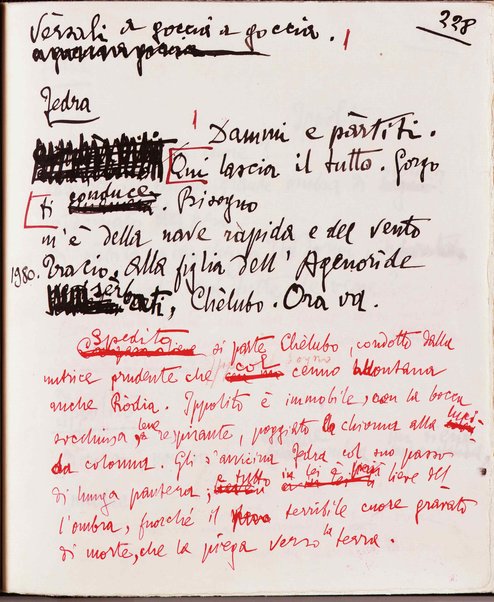 228
Versali a goccia a goccia.
Fedra
Dammi e pàrtiti.
Qui lascia il tutto. Gorgo
ti conduce. Bisogno
m'è della nave ràpida e del vento
1980. Tracio. Alla figlia dell'Agenoride
sèrbati, Chèlubo. Ora va.
Spedito si parte Chèlubo, condotto dalla
nutrice prudente che col cenno allontana
anche Ròdia. Ippolito è immobile, con la bocca
socchiusa, leve respirante, poggiato la chioma alla
colonna. Gli s'avvicina Fedra col suo passo
di lunga pantera; e tutto in lei è più lieve dell'
l'ombra, fuorché il terribile cuore gravato
di morte, che la piega verso la terra.